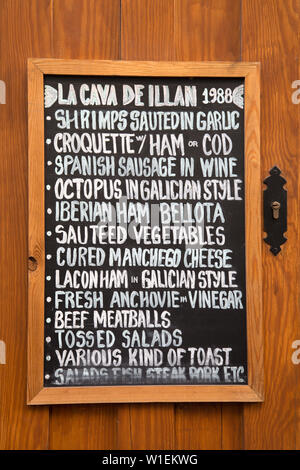 LA CAVA DE ILLAN 1988
SHRIMPS SAUTED IN GARLIC
CROQUETTE W/ HAM OR COD
SPANISH SAUSAGE IN WINE
OCTOPUS IN GALICIAN STYLE
IBERIAN HAM BELLOTA
SAUTEED VEGETABLES
CURED MANCHEGO CHEESE
LACON HAM IN GALICIAN STYLE
FRESH ANCHOVIE IN VINEGAR
BEEF MEATBALLS
TOSSED SALADS
VARIOUS KIND OF TOAST
SALADS FISH STEAK PORK ETC
alamy
W1EKWG
www.alamy.com